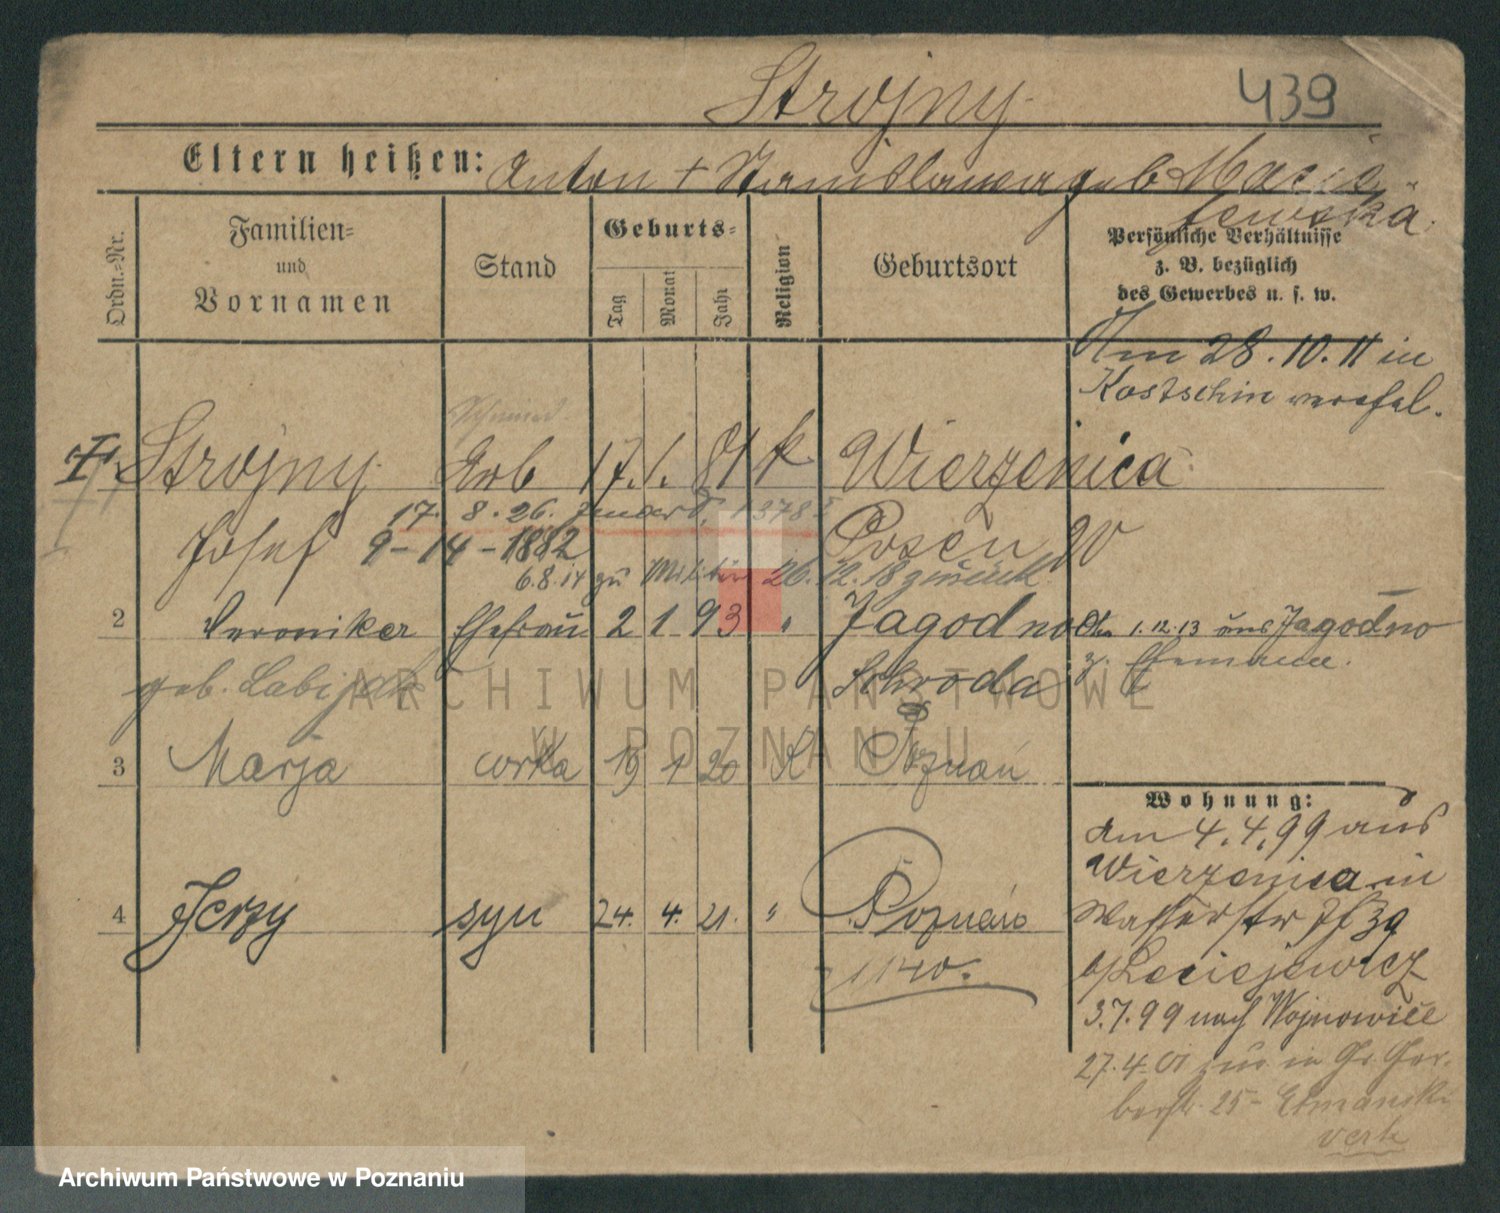 Strojny
439
Eltern heißen: Anton + Stanislawa geb Macie-
jewska.
Ordn.-Nr.
Familien-
und
Vornamen
Stand
Geburts-
Tag
Monat
Jahr
Religion
Geburtsort
Persönliche Verhältnisse
z. B. bezüglich
des Gewerbes u. s. w.
Am 28.10.11 in
Kostschin verehel.
Strojny Arb 17. 1. 81 k. Wierzenica
17. 8. 26.
Josef 9-14-1882 Posen
6.8.14 zu Militär 26.12.18 zurück
2 Veronika Ehefrau 2 1 93 " Jagodno
1.12.13 aus Jagodno
z. Ehemann.
geb. Labijak Schroda
3 Marja corka 19 1 20 K Poznań
4 Jerzy syn 24. 4. 21. " Poznań
1140.
Wohnung:
Am 4.4.99 aus
Wierzenica in
Wasserstr
b/Leciejewicz
3.7.99 nach Wojnowice
27.4.01 in Gr. Ger-
berstr. 25 - Etmanski
verh
ARCHIWUM PAŃSTWOWE
W POZNANIU
Archiwum Państwowe w Poznaniu